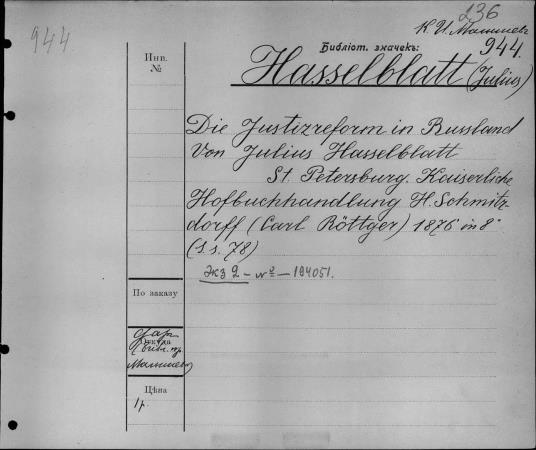 236
К. И. Малышевъ
944
Инв.
№
Библіот. значекъ:
944.
Hasselblatt (Julius)
Die Justizreform in Russland
Von Julius Hasselblatt
St. Petersburg. Kaiserliche
Hofbuchhandlung H. Schmitz-
dorff (Carl Röttger) 1876 in 8°
(S.s. 78)
Экз 2 – № – 194051.
По заказу
Дар
Откуда
Малышев
Цѣна
1 р.